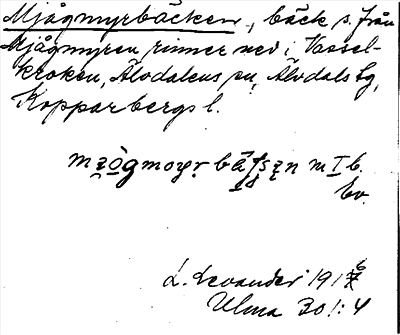 Mjågmyrbäcken, bäck s. från
Mjågmyren rinner ned i Vassel-
kroken, Älvdalens sn, Älvdals tg,
Kopparbergs l.
m I b.
bv.
L. Levander 1916
Ulma 301:4